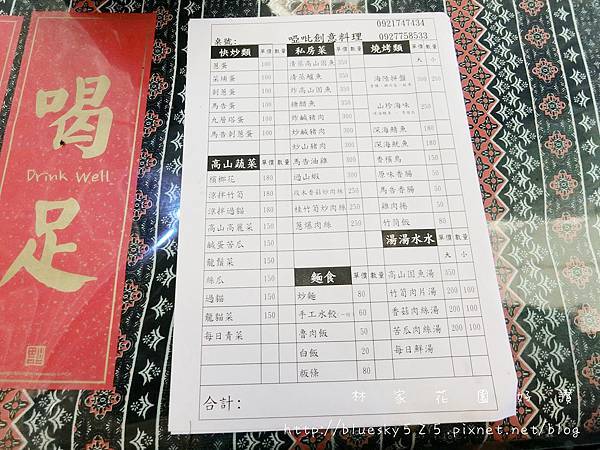 喝
Drink Well
足
0921747434
桌號: 啞吡創意料理 0927758533
快炒類 單價 數量
蔥蛋 100
菜埔蛋 100
剝蔥蛋 100
馬告蛋 100
九層塔蛋 100
馬告剝蔥蛋 100
高山蔬菜 單價 數量
檳榔花 180
涼拌竹筍 180
涼拌過貓 180
高山高麗菜 150
鹹蛋苦瓜 150
龍鬚菜 150
絲瓜 150
過貓 150
龍貓菜 150
每日青菜
私房菜 單價 數量
清蒸高山固魚 350
清蒸鱸魚 350
炸高山固魚 350
糖醋魚
炸鹹豬肉 300
炒鹹豬肉 300
炒山豬肉 300
馬告油雞 300
過山蝦 300
段木香菇炒肉絲 250
桂竹筍炒肉絲 250
蔥爆肉絲 250
麵食 單價 數量
炒麵 80
手工水餃 60
魯肉飯 50
白飯 20
粄條 80
燒烤類 單價 數量
大 小
海陸拼盤
山珍海味
深海鯖魚 180
深海魷魚 180
香檳鳥
原味香腸
馬告香腸
雞肉捲
竹筒飯 80
湯湯水水 單價 數量
大 小
高山固魚湯 350
竹筍肉片湯 200 100
香菇肉絲湯 200 100
苦瓜肉絲湯 200 100
每日鮮湯
合計:
林家花園 好購
http://bluesky525.pixnet.net/blog